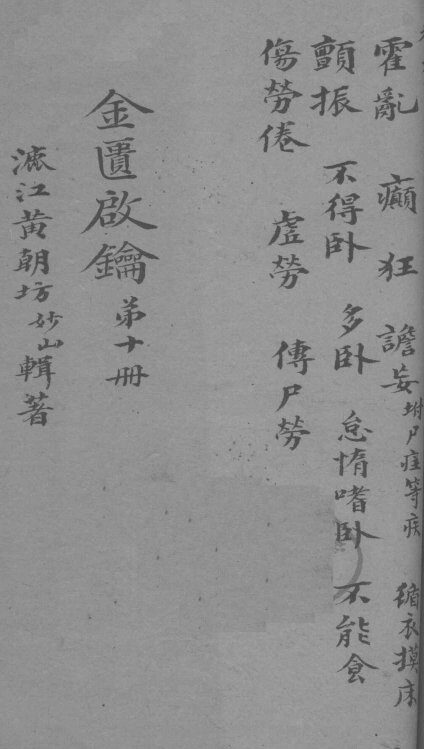 霍亂 癲狂 譫妄 坿尸疰等疾 循衣摸床
顫振 不得卧 多卧 怠惰嗜卧 不能食
傷勞倦 虛勞 傳尸勞
金匱啟鑰 弟十冊
漉江黄朝坊妙山輯著